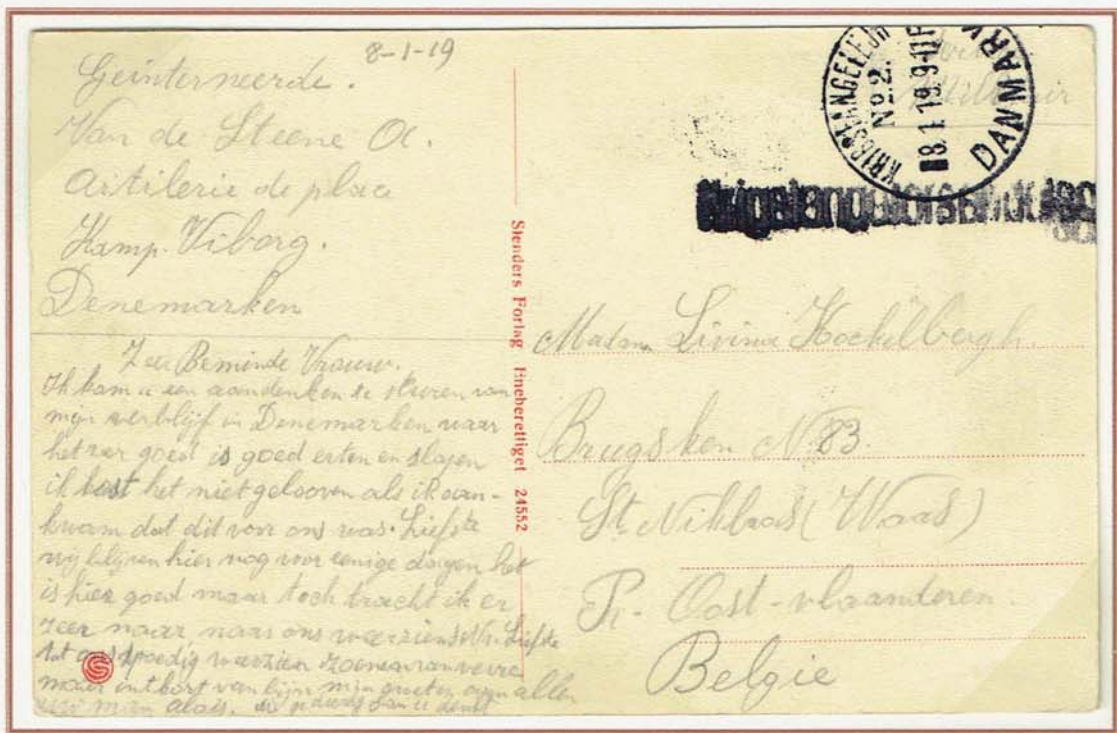 8-1-19
Geinterneerde.
Van de Steene A.
Artilerie de place
Kamp. Viborg.
Denemarken
Zeer Beminde Vrouw.
Ik kom u een aandenken te sturen van
mijn verblijf in Denemarken waar
het zeer goed is goed eten en slapen
ik kost het niet gelooven als ik aan-
kwam dat dit voor ons was. Liefste
wij blijven hier nog voor eenige dagen het
is hier goed maar toch tracht ik er
zeer naar, naar ons weerziens Liefste
tot spoedig weerzien zoenen van verre
maar in't kort van bijn mijn groeten aan allen
uw man alois. aan u denkt
Slenders Forlag Eneberettiget 24552
Militair
No. 2.
8.1.19.9-11F
DANMARK
Madam Livinus Kockelbergh.
Brugsken N 83.
St Niklaas (Waas)
Pr. Oost-vlaanderen.
Belgie